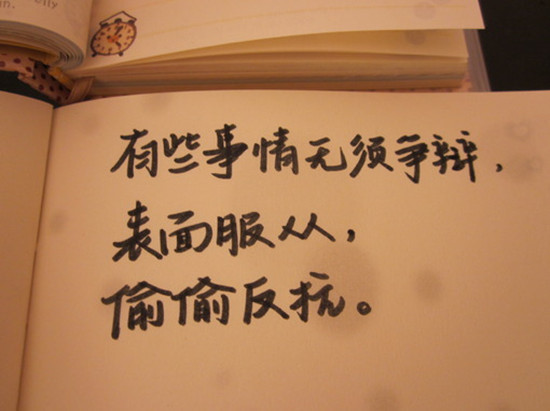 elly
有些事情无须争辩，
表面服从，
偷偷反抗。